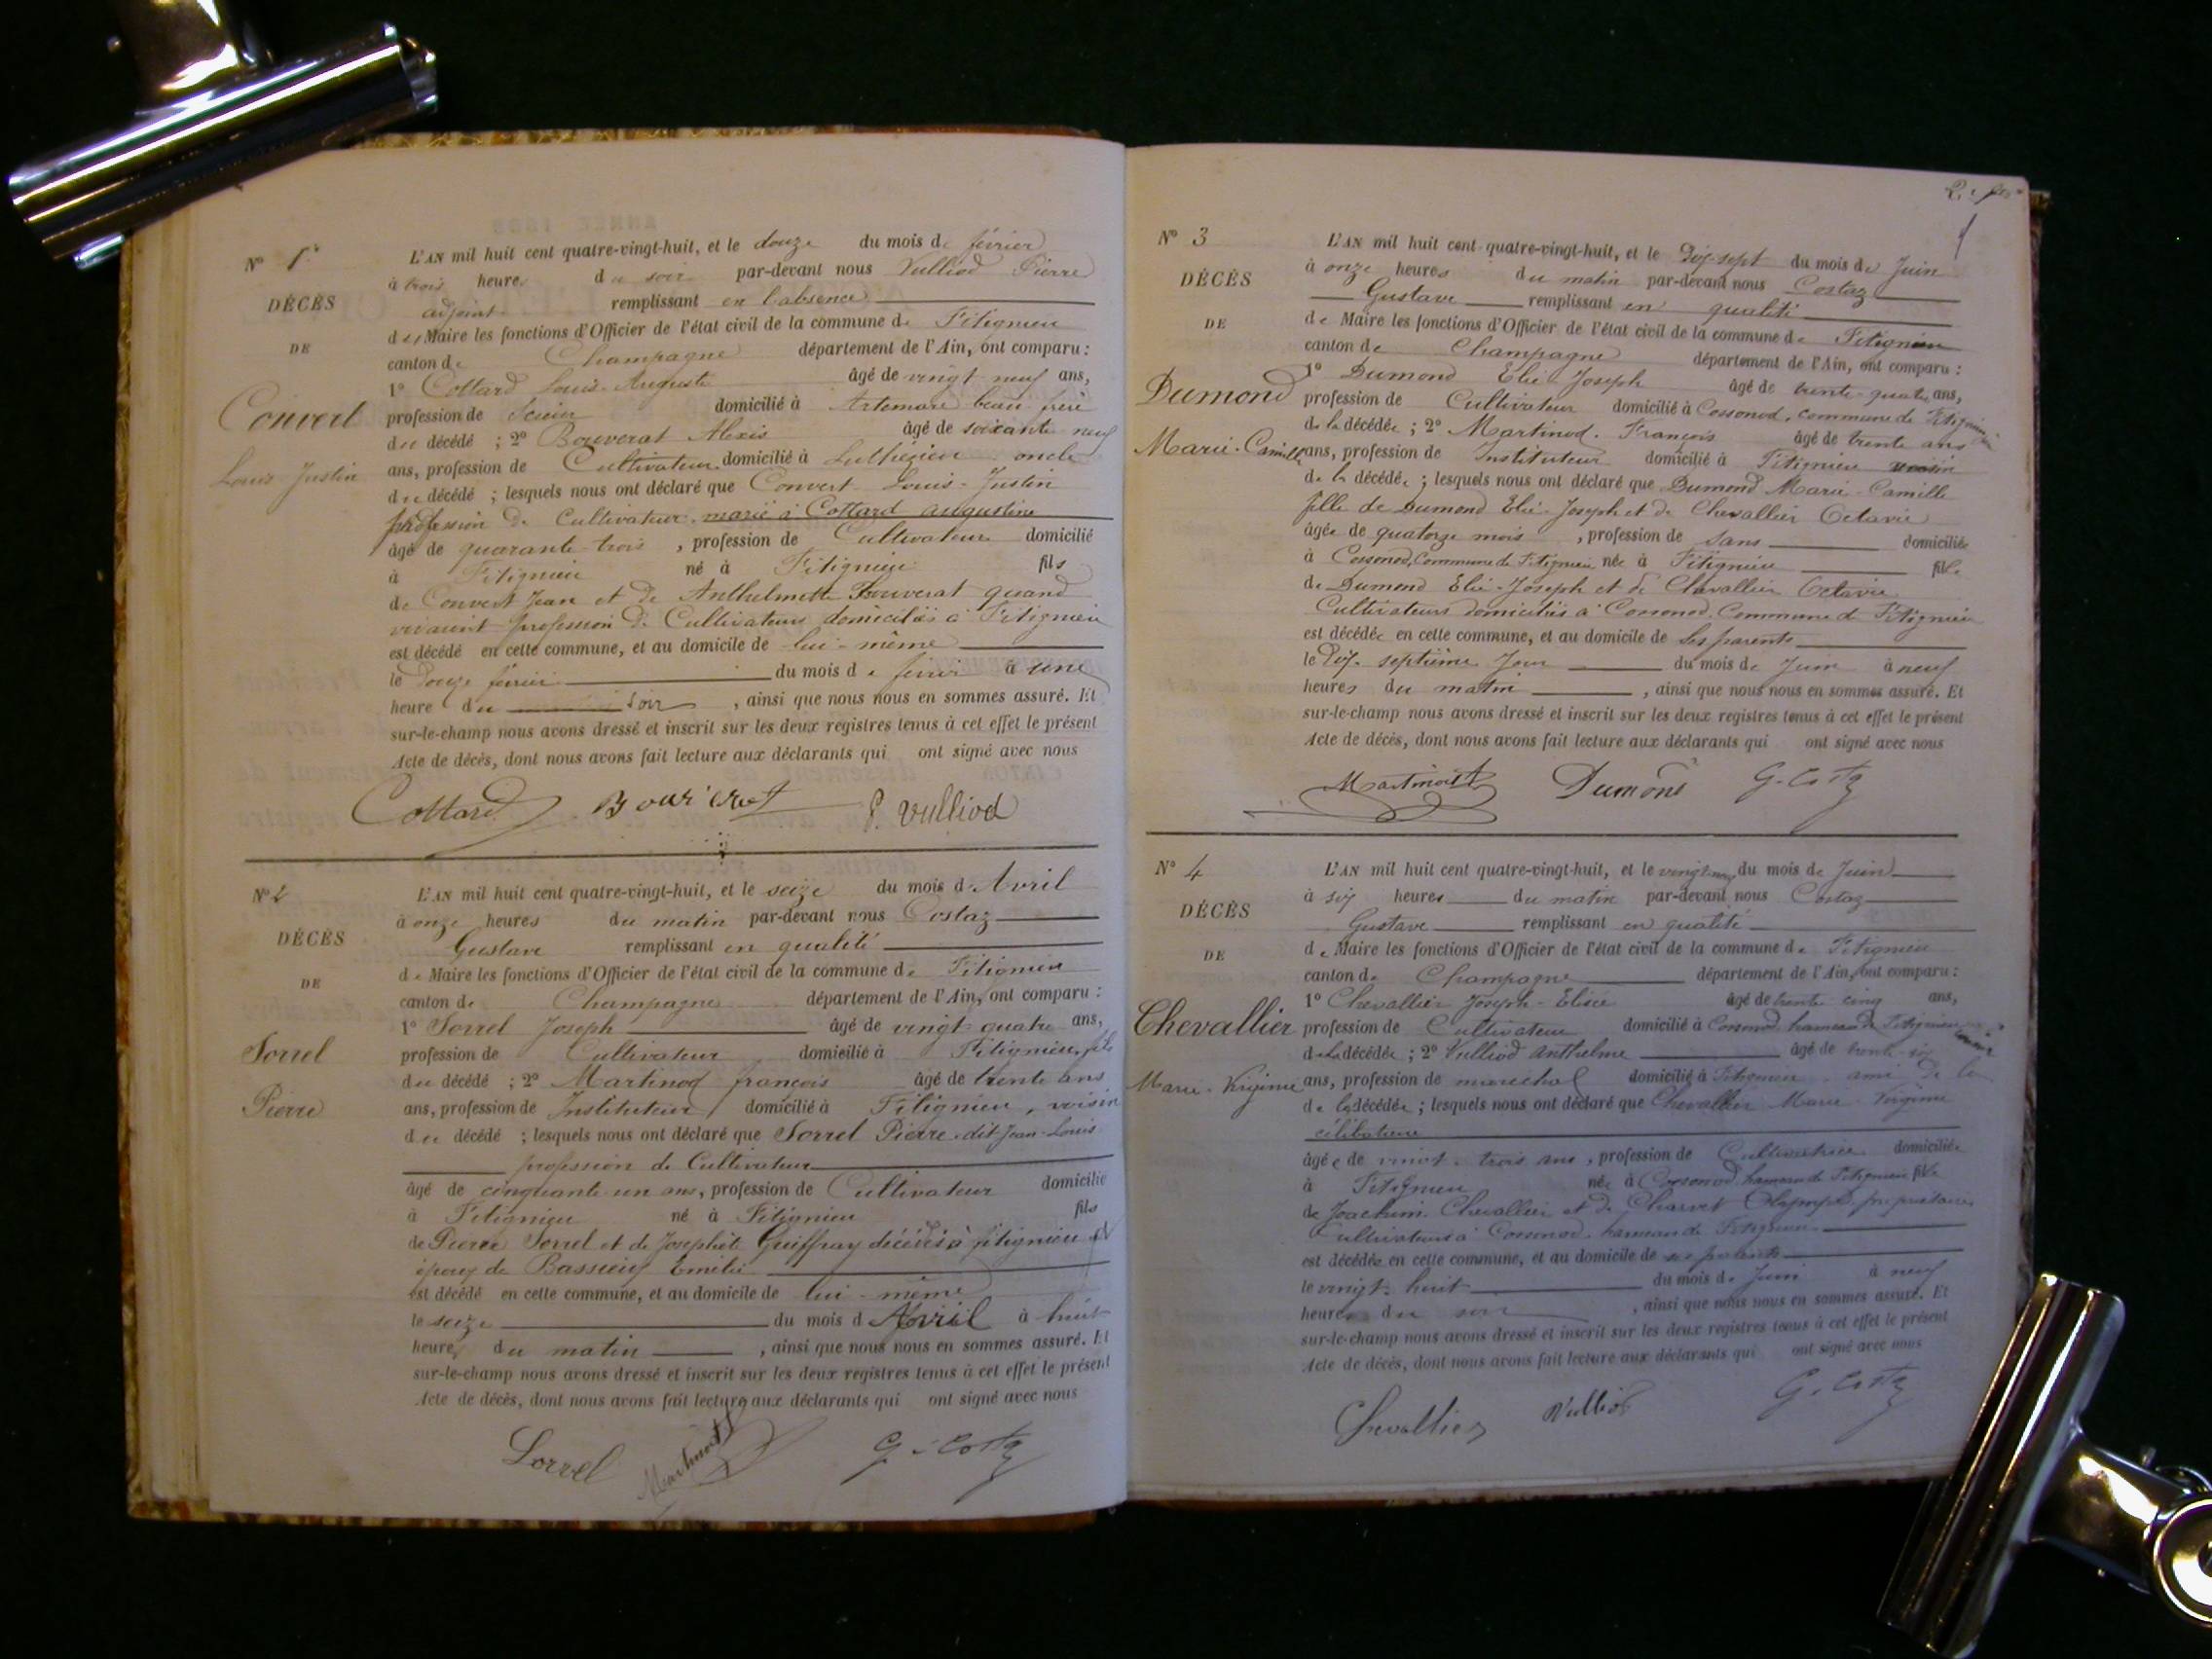 N° 1er
DÉCÈS
DE
Convert
Louis-Justin
L'AN mil huit cent quatre-vingt-huit, et le douze du mois de février
à trois heures du soir par-devant nous Vulliod Pierre
adjoint remplissant en l'absence
du Maire les fonctions d'Officier de l'état civil de la commune de Fitignieu
canton de Champagne département de l'Ain, ont comparu :
1° Cottard Louis-Auguste âgé de vingt neuf ans,
profession de Scieur domicilié à Artemare beau frère
du décédé ; 2° Bouverat Alexis âgé de soixante neuf
ans, profession de Cultivateur domicilié à Luthézieu oncle
du décédé ; lesquels nous ont déclaré que Convert Louis-Justin
profession de Cultivateur marié à Cottard Augustine
âgé de quarante trois , profession de Cultivateur domicilié
à Fitignieu né à Fitignieu fils
de Convert Jean et de Anthelmette Bouverat quand
vivaient profession de Cultivateurs domiciliés à Fitignieu
est décédé en cette commune, et au domicile de lui-même
le douze février du mois de février à une
heure du soir , ainsi que nous nous en sommes assuré. Et
sur-le-champ nous avons dressé et inscrit sur les deux registres tenus à cet effet le présent
Acte de décès, dont nous avons fait lecture aux déclarants qui ont signé avec nous
Cottard Bouverat P. Vulliod
N° 2
DÉCÈS
DE
Sorrel
Pierre
L'AN mil huit cent quatre-vingt-huit, et le seize du mois d'Avril
à onze heures du matin par-devant nous Costaz
Gustave remplissant en qualité
de Maire les fonctions d'Officier de l'état civil de la commune de Fitignieu
canton de Champagne département de l'Ain, ont comparu :
1° Sorrel Joseph âgé de vingt quatre ans,
profession de Cultivateur domicilié à Fitignieu, fils
du décédé ; 2° Martinod françois âgé de trente ans
ans, profession de Instituteur domicilié à Fitignieu, voisin
du décédé ; lesquels nous ont déclaré que Sorrel Pierre dit Jean-Louis
profession de Cultivateur
âgé de cinquante un ans, profession de Cultivateur domicilié
à Fitignieu né à Fitignieu fils
de Pierre Sorrel et de Josephte Guiffray décédés à fitignieu et
époux de Bassieux Emélie
est décédé en cette commune, et au domicile de lui-même
le seize du mois d'Avril à huit
heures du matin , ainsi que nous nous en sommes assuré. Et
sur-le-champ nous avons dressé et inscrit sur les deux registres tenus à cet effet le présent
Acte de décès, dont nous avons fait lecture aux déclarants qui ont signé avec nous
Sorrel Martinod G. Costaz
N° 3
DÉCÈS
DE
Dumond
Marie-Camille
L'AN mil huit cent quatre-vingt-huit, et le Dix-sept du mois de Juin
à onze heures du matin par-devant nous Costaz
Gustave remplissant en qualité
de Maire les fonctions d'Officier de l'état civil de la commune de Fitignieu
canton de Champagne département de l'Ain, ont comparu :
1° Dumond Elie Joseph âgé de trente-quatre ans,
profession de Cultivateur domicilié à Cossonod, commune de Fitignieu
de la décédée ; 2° Martinod François âgé de trente ans
ans, profession de Instituteur domicilié à Fitignieu voisin
de la décédée ; lesquels nous ont déclaré que Dumond Marie-Camille
fille de Dumond Elie-Joseph et de Chevallier Octavie
âgée de quatorze mois , profession de sans domiciliée
à Cossonod, Commune de Fitignieu née à Fitignieu fille
de Dumond Elie-Joseph et de Chevallier Octavie
Cultivateurs domiciliés à Cossonod Commune de Fitignieu
est décédée en cette commune, et au domicile de ses parents
le Dix-septième Jour du mois de Juin à neuf
heures du matin , ainsi que nous nous en sommes assuré. Et
sur-le-champ nous avons dressé et inscrit sur les deux registres tenus à cet effet le présent
Acte de décès, dont nous avons fait lecture aux déclarants qui ont signé avec nous
Martinod Dumond G. Costaz
N° 4
DÉCÈS
DE
Chevallier
Marie-Virginie
L'AN mil huit cent quatre-vingt-huit, et le vingt-neuf du mois de Juin
à six heures du matin par-devant nous Costaz
Gustave remplissant en qualité
de Maire les fonctions d'Officier de l'état civil de la commune de Fitignieu
canton de Champagne département de l'Ain, ont comparu :
1° Chevallier Joseph-Elisée âgé de trente-cinq ans,
profession de Cultivateur domicilié à Cossonod, hameau de Fitignieu
de la décédée ; 2° Vulliod Anthelme âgé de trente-six
ans, profession de marechal domicilié à Fitignieu ami de la
de la décédée ; lesquels nous ont déclaré que Chevallier Marie Virginie
célibataire
âgée de vingt-trois ans, profession de Cultivatrice domiciliée
à Fitignieu née à Cossonod hameau de Fitignieu fille
de Joachim Chevallier et de Charvet Olympe propriétaires
Cultivateurs à Cossonod hameau de Fitignieu
est décédée en cette commune, et au domicile de ses parents
le vingt-huit du mois de Juin à neuf
heures du soir , ainsi que nous nous en sommes assuré. Et
sur-le-champ nous avons dressé et inscrit sur les deux registres tenus à cet effet le présent
Acte de décès, dont nous avons fait lecture aux déclarants qui ont signé avec nous
Chevallier Vulliod G. Costaz